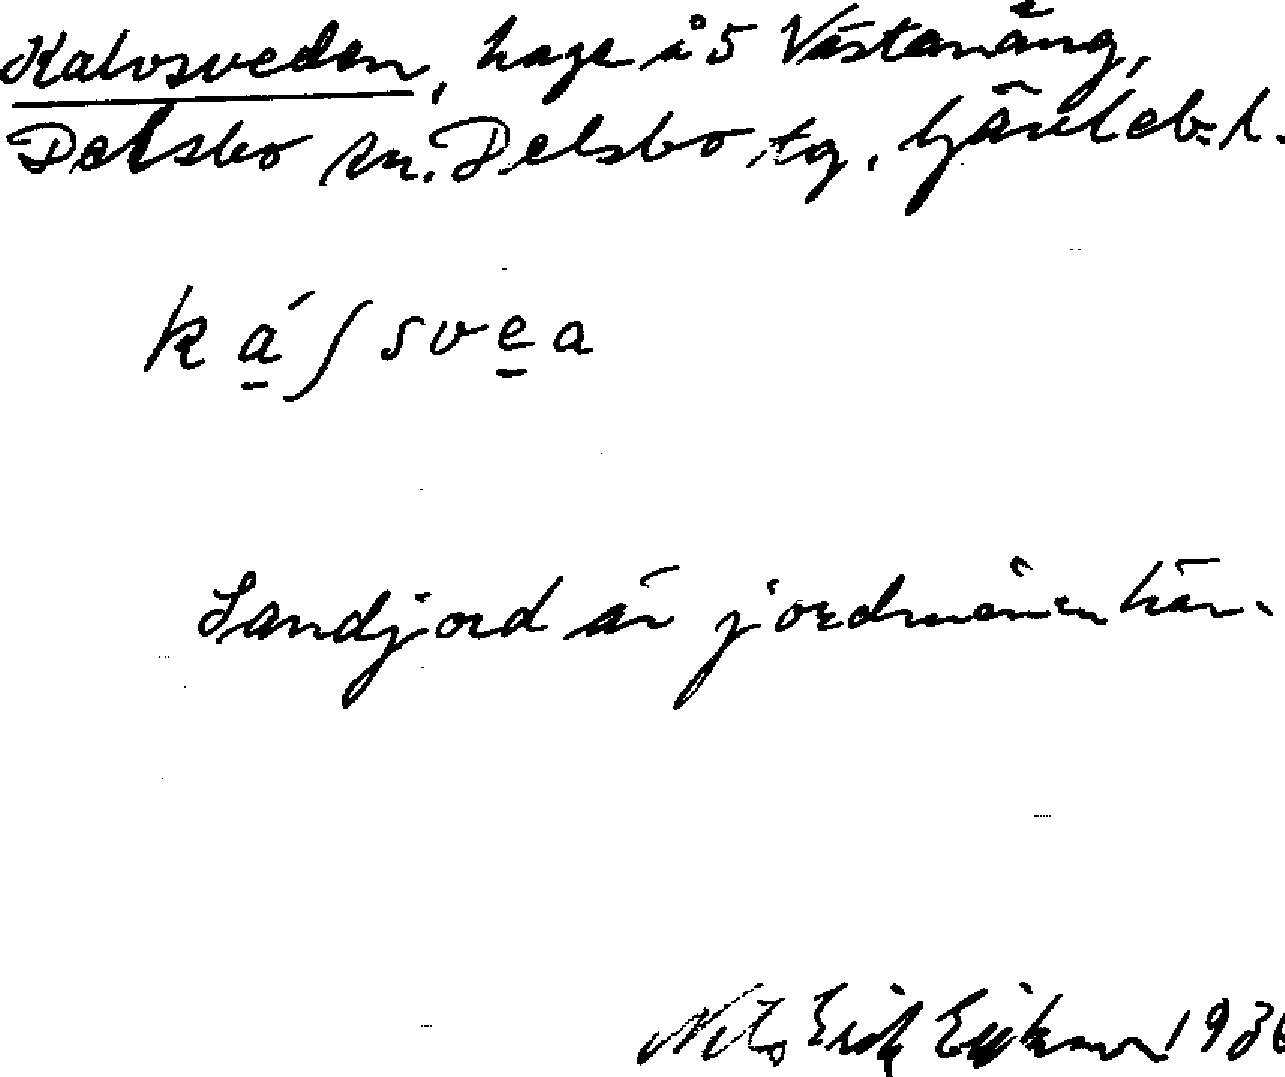 Kalvsveden, hage å 5 Västanäng,
Delsbo sn. Delsbo tg. Gävleb. l.
ká̱ʃsve̱a
Sandjord är jordmånen här.
Nils Erik Eriksson 1936